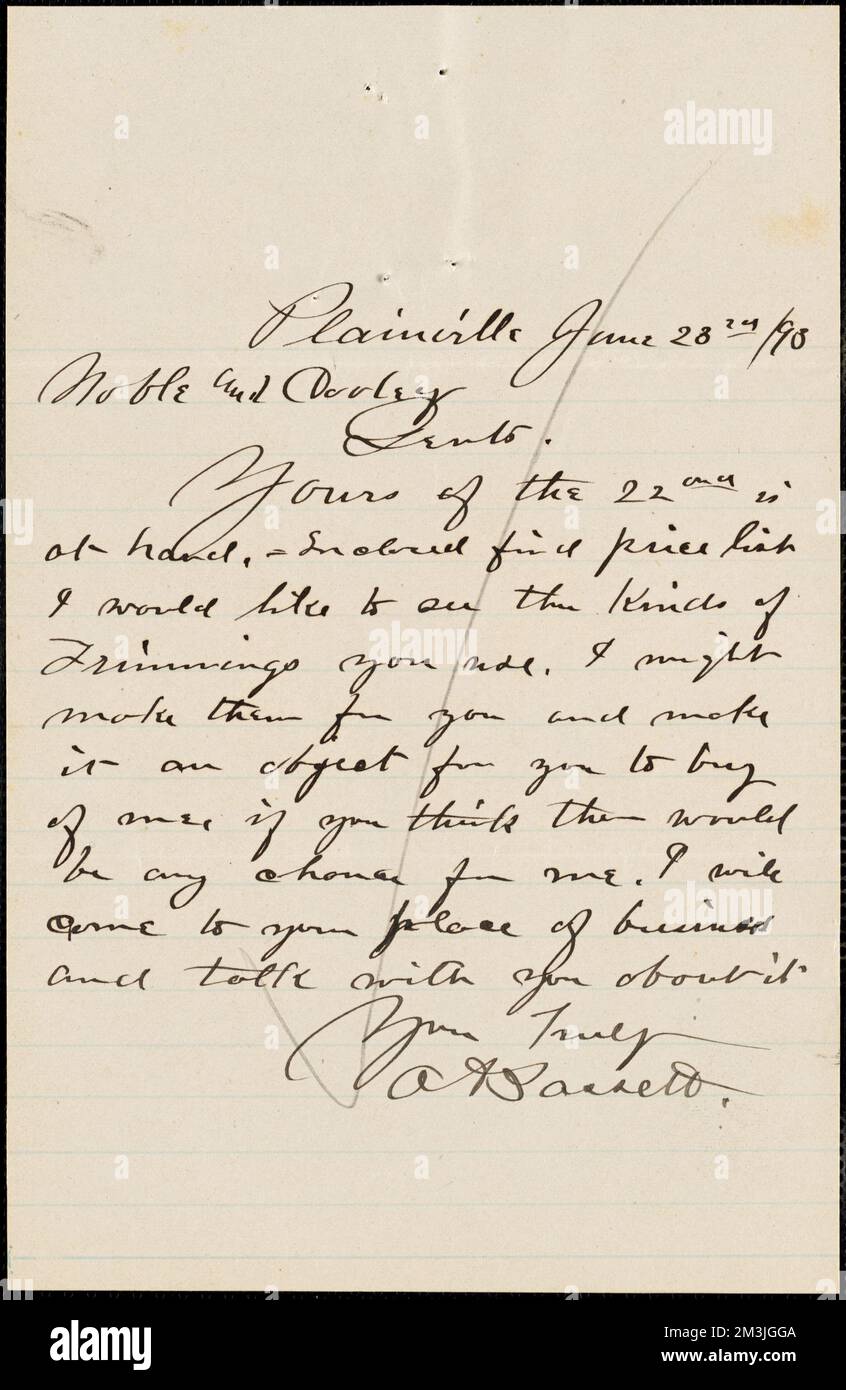 Plainville June 23rd /93
Noble and Cooley
Gents.
Yours of the 22ond is
at hand, = Enclosed find price list
I would like to see the Kinds of
Trimmings you use. I might
make them for you and make
it an object for you to buy
of mee if you think their would
be any chance for me. I will
come to your place of business
and talk with you about it
Your Truly
O A Bassett.
alamy
a
Image ID: 2M3JGGA
www.alamy.com